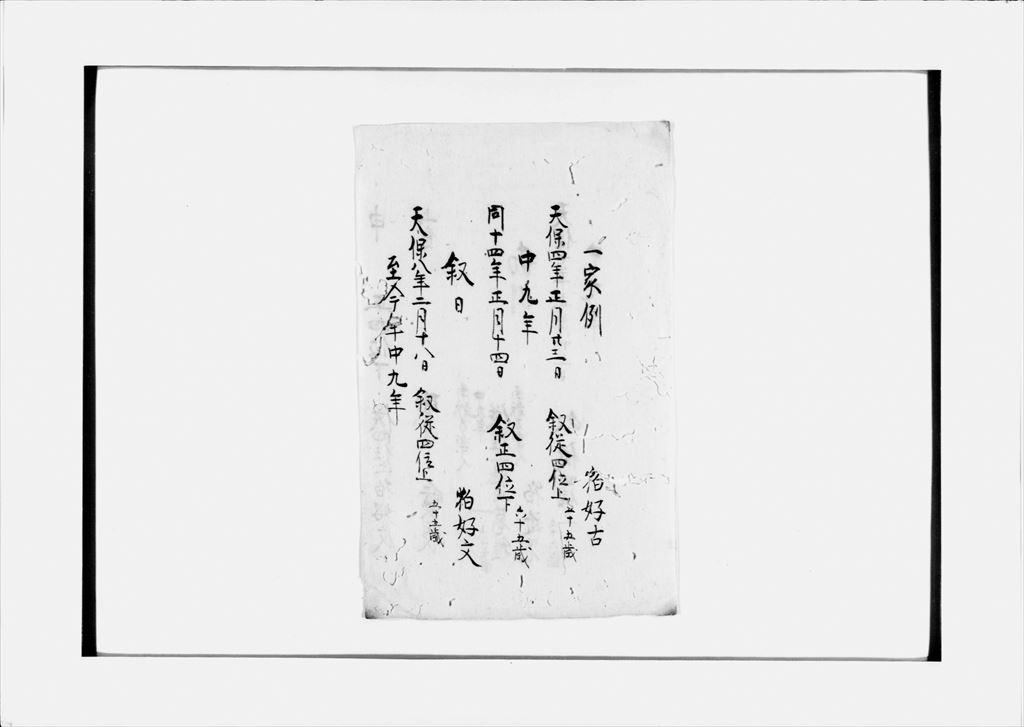 一家例　狛好古
天保四年正月廿三日　叙従四位上　五十五歳
中九年
同十四年正月十四日　叙正四位下　六十五歳
叙日　狛好文
天保八年二月十八日　叙従四位上　五十五歳
至今年中九年